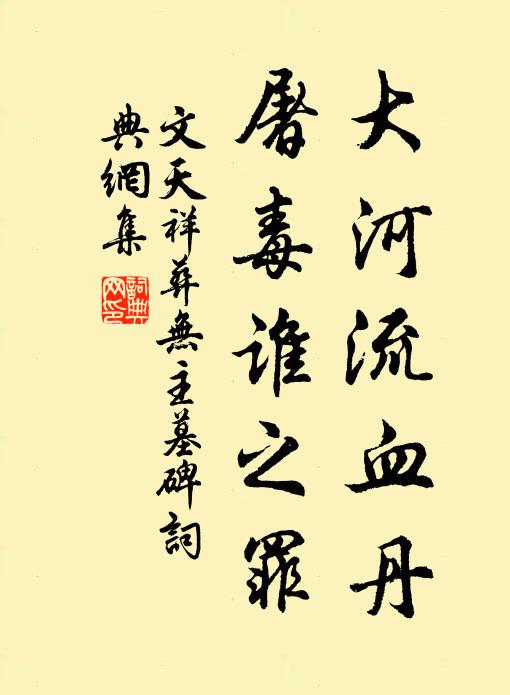 大河流血丹
屠毒誰之罪
文天祥葬無主墓碑詞
典網集
詞典
网印